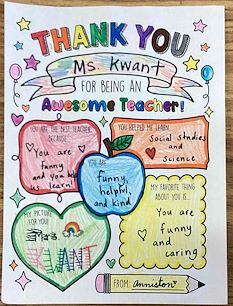 THANK YOU
Ms. Kwant
FOR BEING AN
Awesome Teacher!
YOU ARE THE BEST TEACHER
BECAUSE...
You are
funny
and you
us learn!
YOU HELPED ME LEARN
Social studies
and
science
YOU ARE
funny,
helpful,
and kind
MY FAVORITE THING
ABOUT YOU IS...
You are
funny
and
caring
MY PICTURE
FOR YOU!
KWANT
FROM: Anniston